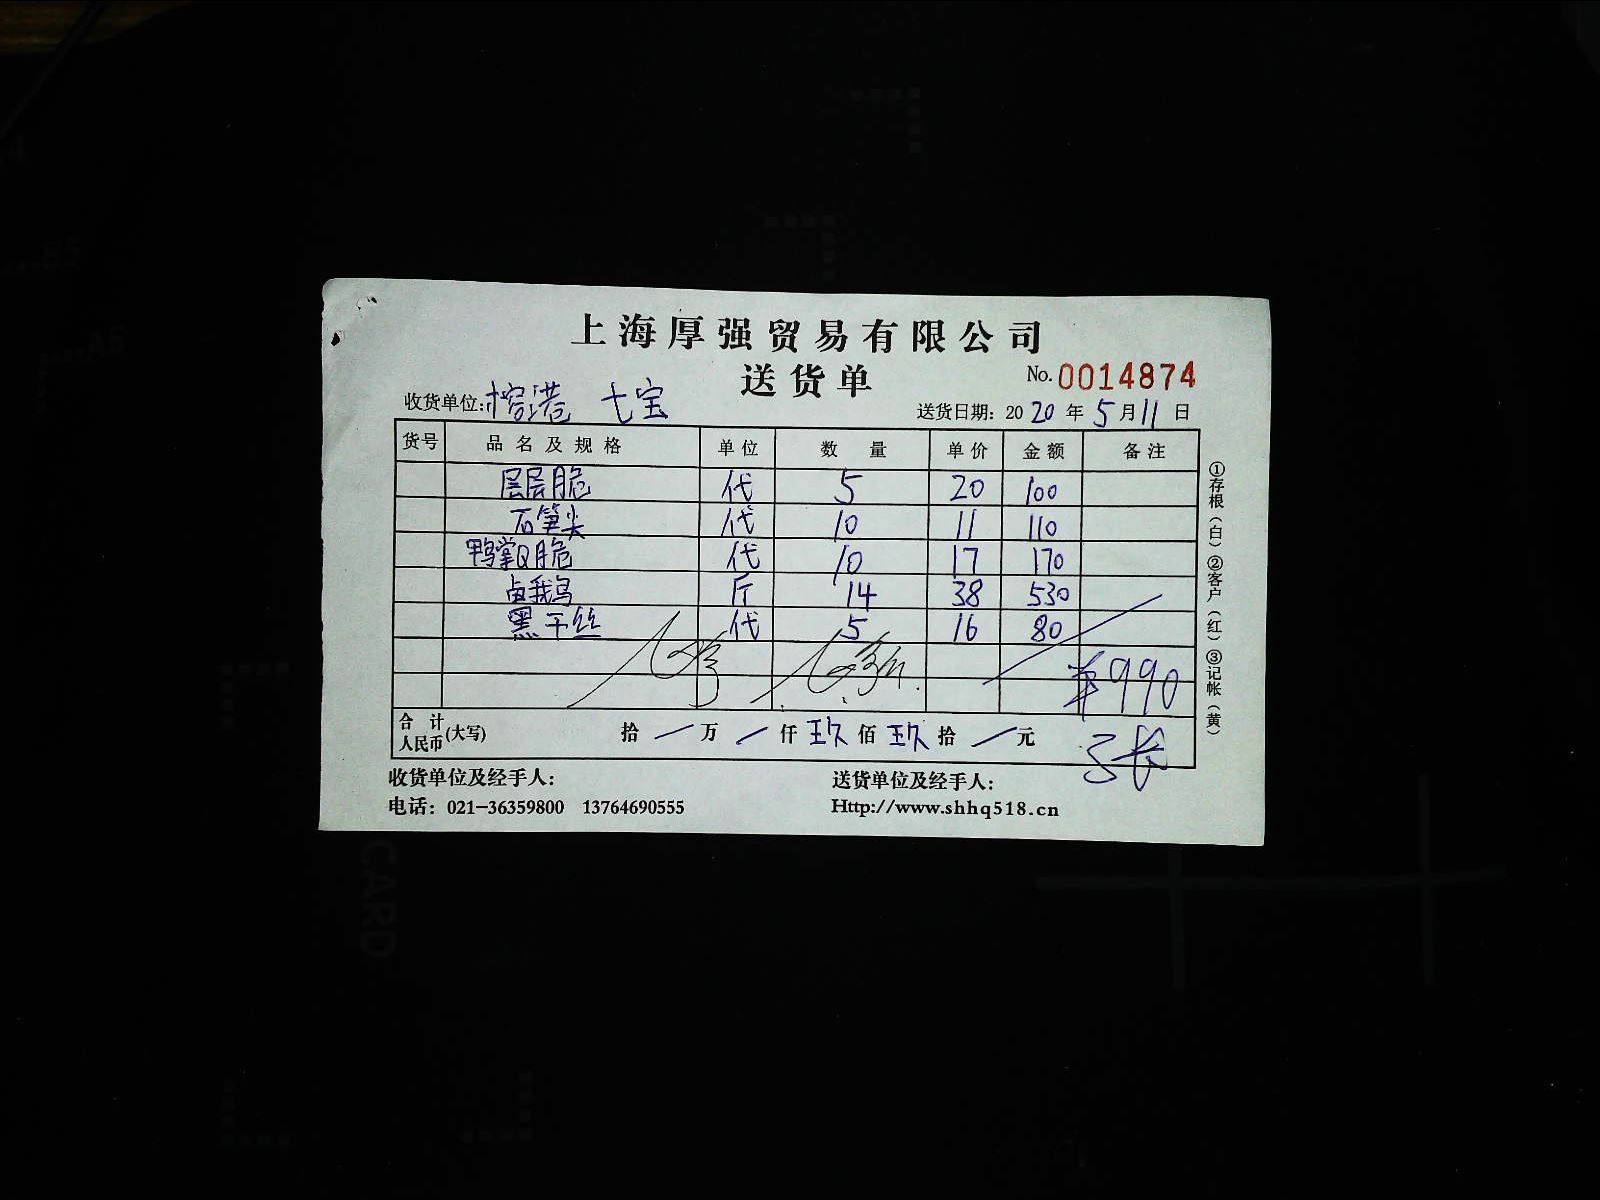 上海厚强贸易有限公司
送货单
No. 0014874
收货单位: 榕港 七宝
送货日期: 2020年5月11日
货号 品名及规格 单位 数量 单价 金额 备注
层层脆 代 5 20 100
石笋尖 代 10 11 110
鸭掌Q脆 代 10 17 170
卤我鸟 斤 14 38 530
黑干丝 代 5 16 80
¥990
合计人民币(大写) 拾 一 万 一 仟 玖 佰 玖 拾 一 元
收货单位及经手人:
送货单位及经手人:
电话: 021-36359800 13764690555
Http://www.shhq518.cn
①存根(白)②客户(红)③记帐(黄)